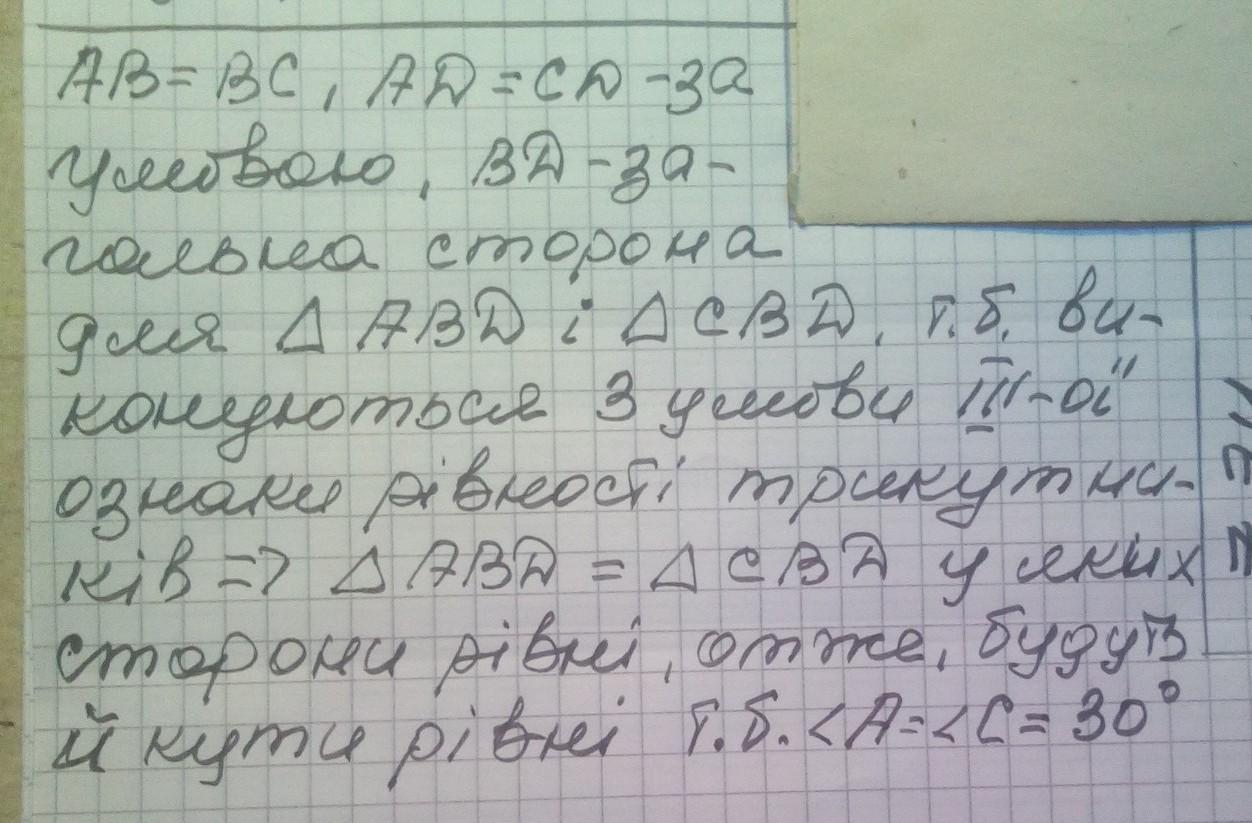 AB = BC, AD = CD - за
умовою, BD - за-
гальна сторона
для △ ABD і △ CBD, т.б. ви-
конуються 3 умови III-ої
ознаки рівності трикутни-
ків => △ ABD = △ CBD у яких
сторони рівні, отже, будуть
й кути рівні т.б. <A = <C = 30°